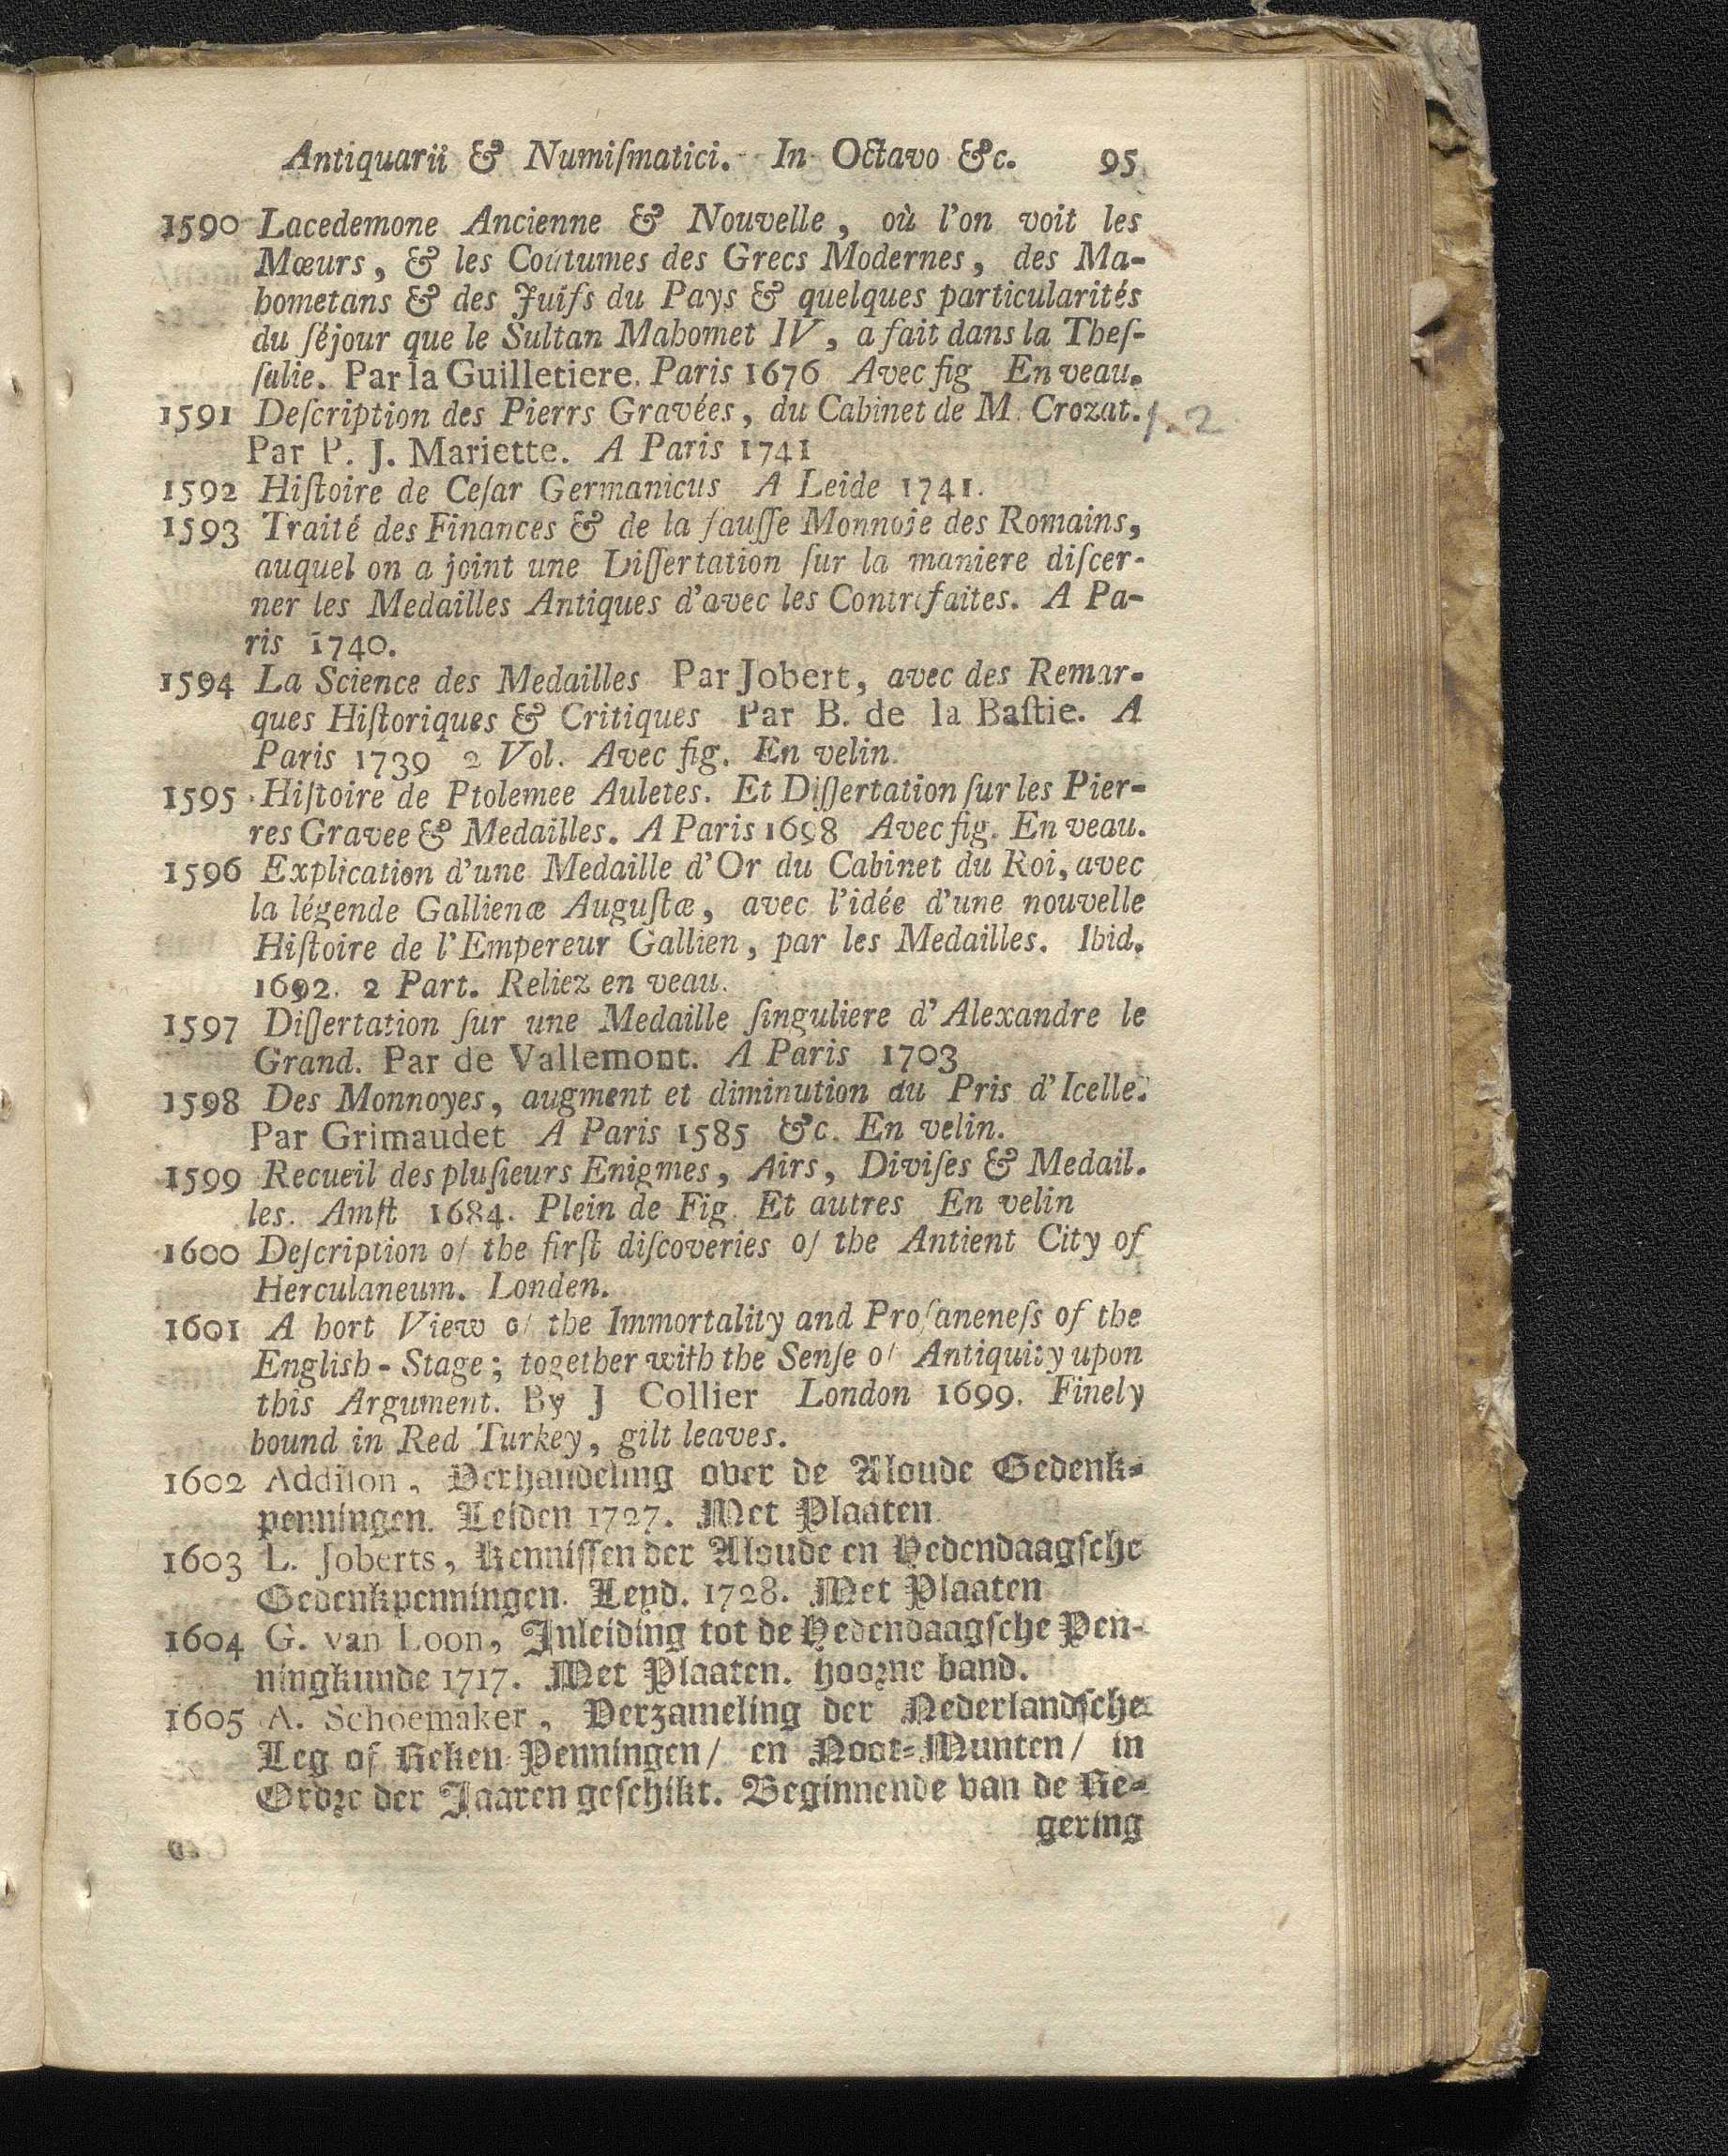 Antiquarii & Numiſmatici. In Octavo &c. 95
1590 Lacedemone Ancienne & Nouvelle, où l'on voit les
Mœurs, & les Coûtumes des Grecs Modernes, des Ma-
hometans & des Juifs du Pays & quelques particularités
du ſéjour que le Sultan Mahomet IV, a fait dans la Theſ-
ſalie. Par la Guilletiere. Paris 1676 Avec fig En veau.
1591 Deſcription des Pierrs Gravées, du Cabinet de M. Crozat.
Par P. J. Mariette. A Paris 1741
1592 Hiſtoire de Ceſar Germanicus A Leide 1741.
1593 Traité des Finances & de la fauſſe Monnoie des Romains,
auquel on a joint une Diſſertation ſur la maniere diſcer-
ner les Medailles Antiques d'avec les Contrefaites. A Pa-
ris 1740.
1594 La Science des Medailles Par Jobert, avec des Remar-
ques Hiſtoriques & Critiques Par B. de la Baſtie. A
Paris 1739 2 Vol. Avec fig. En velin.
1595 Hiſtoire de Ptolemee Auletes. Et Diſſertation ſur les Pier-
res Gravee & Medailles. A Paris 1698 Avec fig. En veau.
1596 Explication d'une Medaille d'Or du Cabinet du Roi, avec
la légende Gallienæ Auguſtæ, avec l'idée d'une nouvelle
Hiſtoire de l'Empereur Gallien, par les Medailles. Ibid.
1692. 2 Part. Reliez en veau.
1597 Diſſertation ſur une Medaille ſinguliere d'Alexandre le
Grand. Par de Vallemont. A Paris 1703
1598 Des Monnoyes, augment et diminution du Pris d'Icelle.
Par Grimaudet A Paris 1585 &c. En velin.
1599 Recueil des pluſieurs Enigmes, Airs, Diviſes & Medail.
les. Amſt 1684. Plein de Fig. Et autres En velin
1600 Deſcription of the firſt diſcoveries of the Antient City of
Herculaneum. Londen.
1601 A hort View of the Immortality and Profaneneſs of the
English-Stage; together with the Senſe of Antiquity upon
this Argument. By J Collier London 1699. Finely
bound in Red Turkey, gilt leaves.
1602 Addiſon, Verhandeling over de Aloude Gedenk-
penningen. Leiden 1727. Met Plaaten
1603 L. Joberts, Kennissen der Aloude en Hedendaagsche
Gedenkpenningen. Leyd. 1728. Met Plaaten
1604 G. van Loon, Inleiding tot de Hedendaagsche Pen-
ningkunde 1717. Met Plaaten. hoorne band.
1605 A. Schoemaker, Verzameling der Nederlandsche
Leg of Reken-Penningen/ en Noot-Munten/ in
Ordre der Jaaren geschikt. Beginnende van de Re-
gering